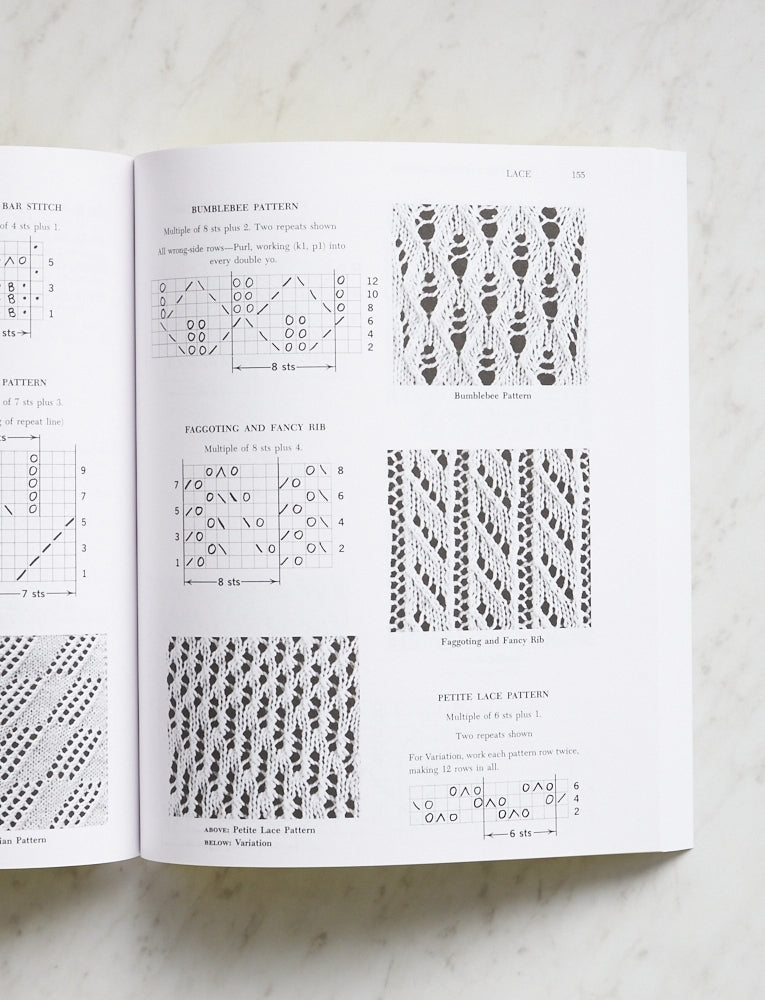 BAR STITCH
of 4 sts plus 1.
5
3
1
sts
PATTERN
of 7 sts plus 3.
g of repeat line)
9
7
5
3
1
7 sts
ian Pattern
LACE 155
BUMBLEBEE PATTERN
Multiple of 8 sts plus 2. Two repeats shown
All wrong-side rows—Purl, working (k1, p1) into
every double yo.
12
10
8
6
4
2
8 sts
Bumblebee Pattern
FAGGOTING AND FANCY RIB
Multiple of 8 sts plus 4.
8
7
6
5
4
3
2
1
8 sts
Faggoting and Fancy Rib
ABOVE: Petite Lace Pattern
BELOW: Variation
PETITE LACE PATTERN
Multiple of 6 sts plus 1.
Two repeats shown
For Variation, work each pattern row twice,
making 12 rows in all.
6
4
2
6 sts